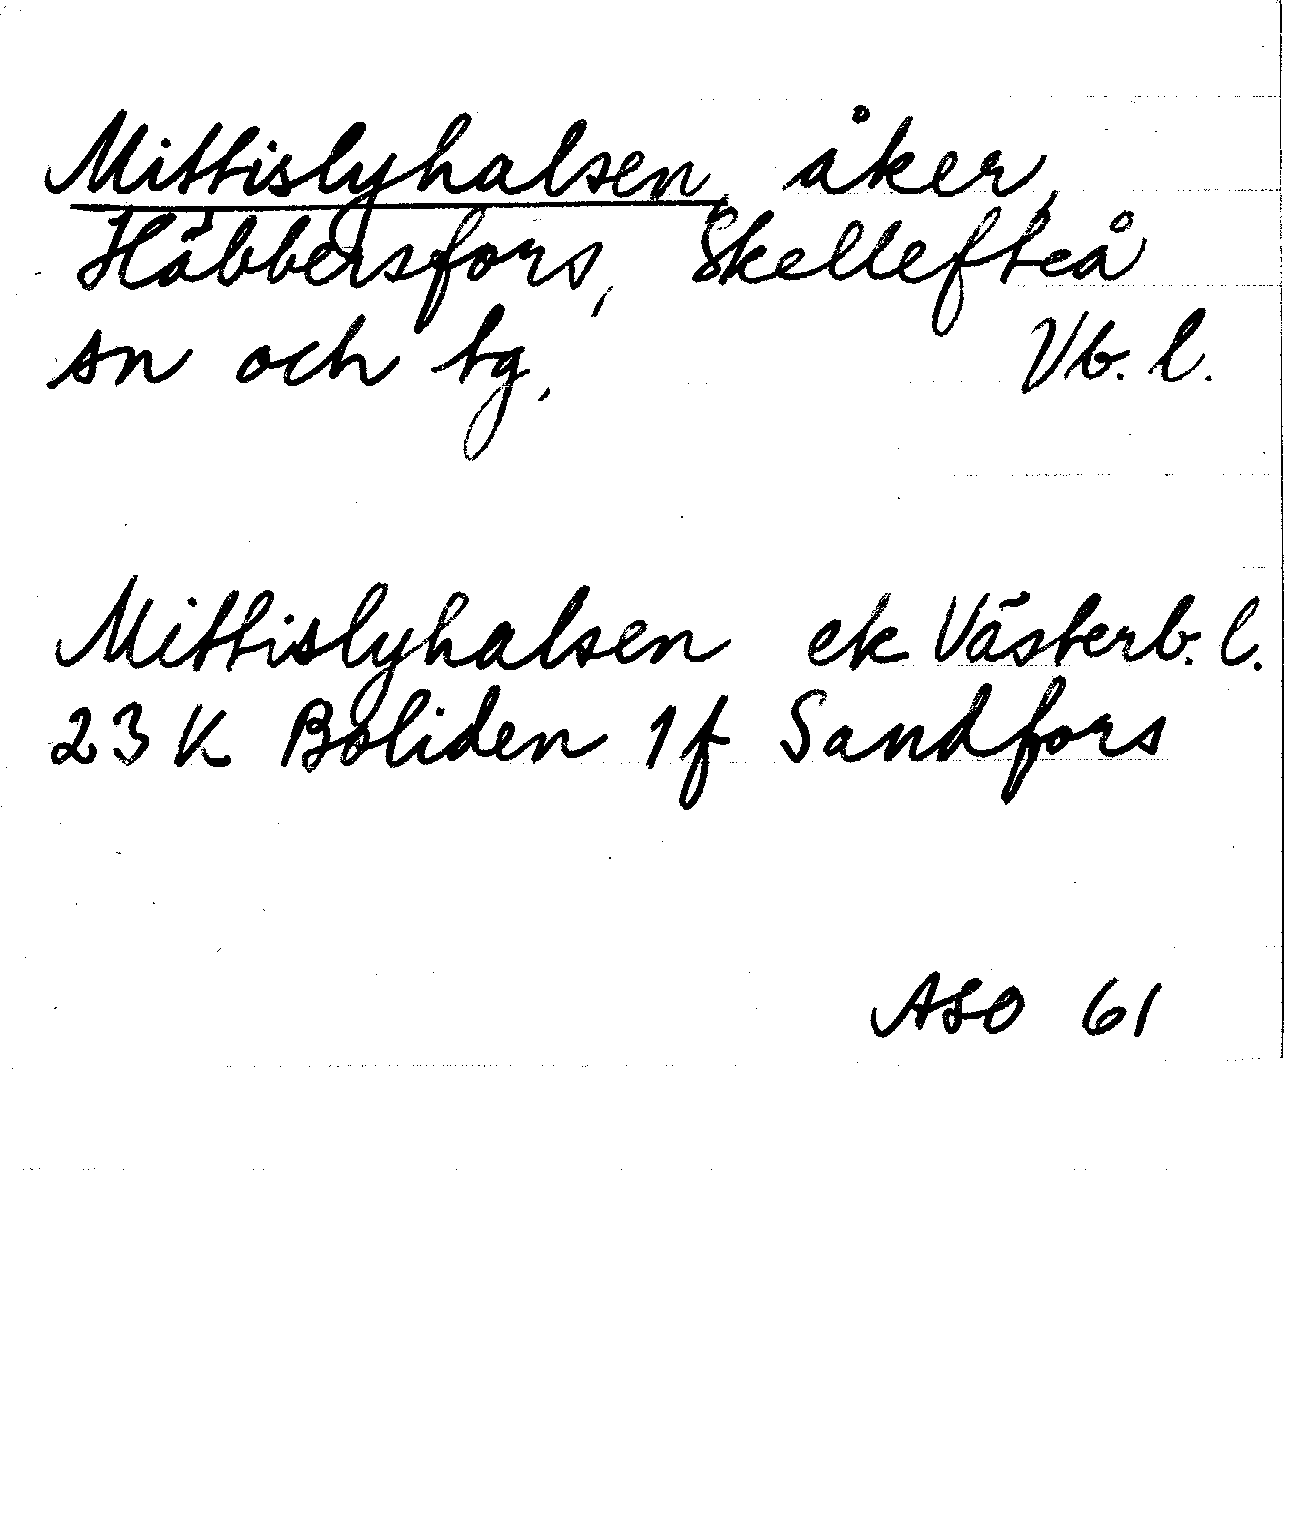 Mittislyhalsen, åker,
Häbbersfors, Skellefteå
sn och tg,          Vb. l.
Mittislyhalsen ek Västerb. l.
23 K Boliden 1f Sandfors
ASO 61